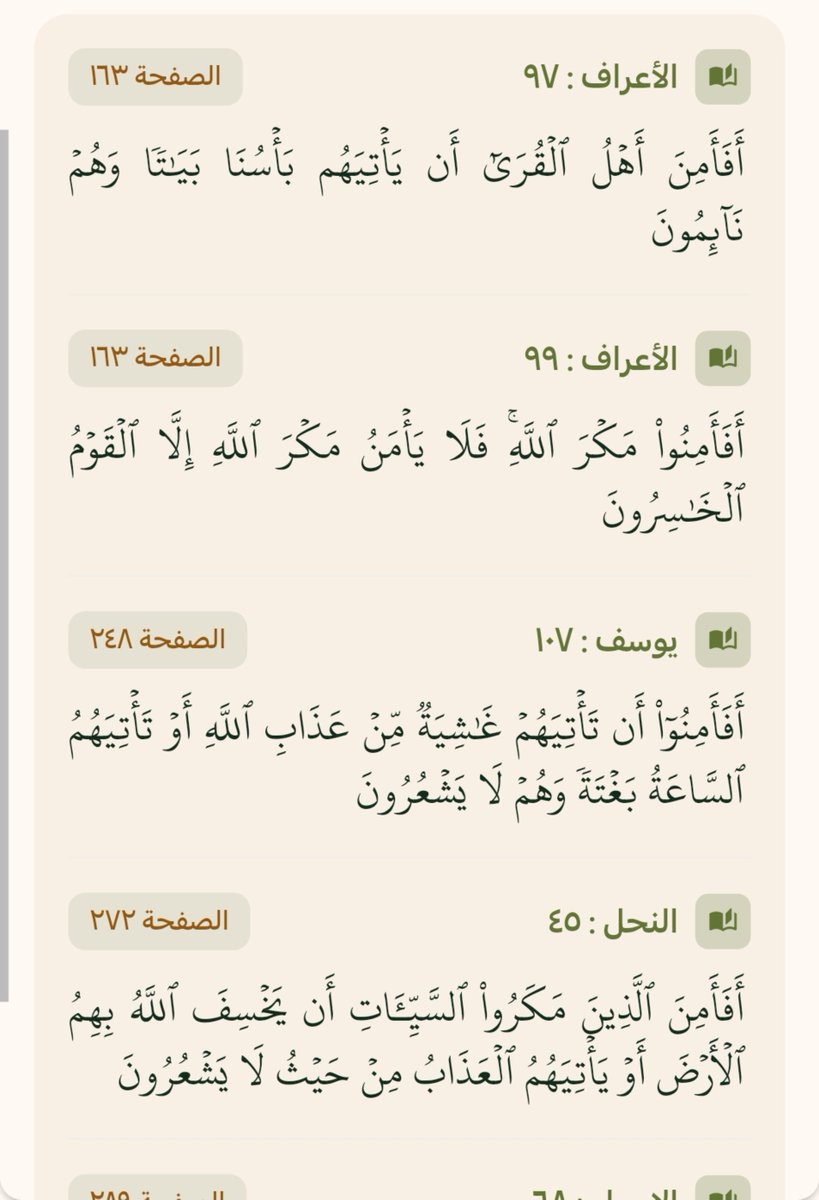 الأعراف : ٩٧ الصفحة ١٦٣
أَفَأَمِنَ أَهۡلُ ٱلۡقُرَىٰٓ أَن يَأۡتِيَهُم بَأۡسُنَا بَيَٰتٗا وَهُمۡ
نَآئِمُونَ
الأعراف : ٩٩ الصفحة ١٦٣
أَفَأَمِنُواْ مَكۡرَ ٱللَّهِۚ فَلَا يَأۡمَنُ مَكۡرَ ٱللَّهِ إِلَّا ٱلۡقَوۡمُ
ٱلۡخَٰسِرُونَ
يوسف : ١٠٧ الصفحة ٢٤٨
أَفَأَمِنُوٓاْ أَن تَأۡتِيَهُمۡ غَٰشِيَةٞ مِّنۡ عَذَابِ ٱللَّهِ أَوۡ تَأۡتِيَهُمُ
ٱلسَّاعَةُ بَغۡتَةٗ وَهُمۡ لَا يَشۡعُرُونَ
النحل : ٤٥ الصفحة ٢٧٢
أَفَأَمِنَ ٱلَّذِينَ مَكَرُواْ ٱلسَّيِّـَٔاتِ أَن يَخۡسِفَ ٱللَّهُ بِهِمُ
ٱلۡأَرۡضَ أَوۡ يَأۡتِيَهُمُ ٱلۡعَذَابُ مِنۡ حَيۡثُ لَا يَشۡعُرُونَ